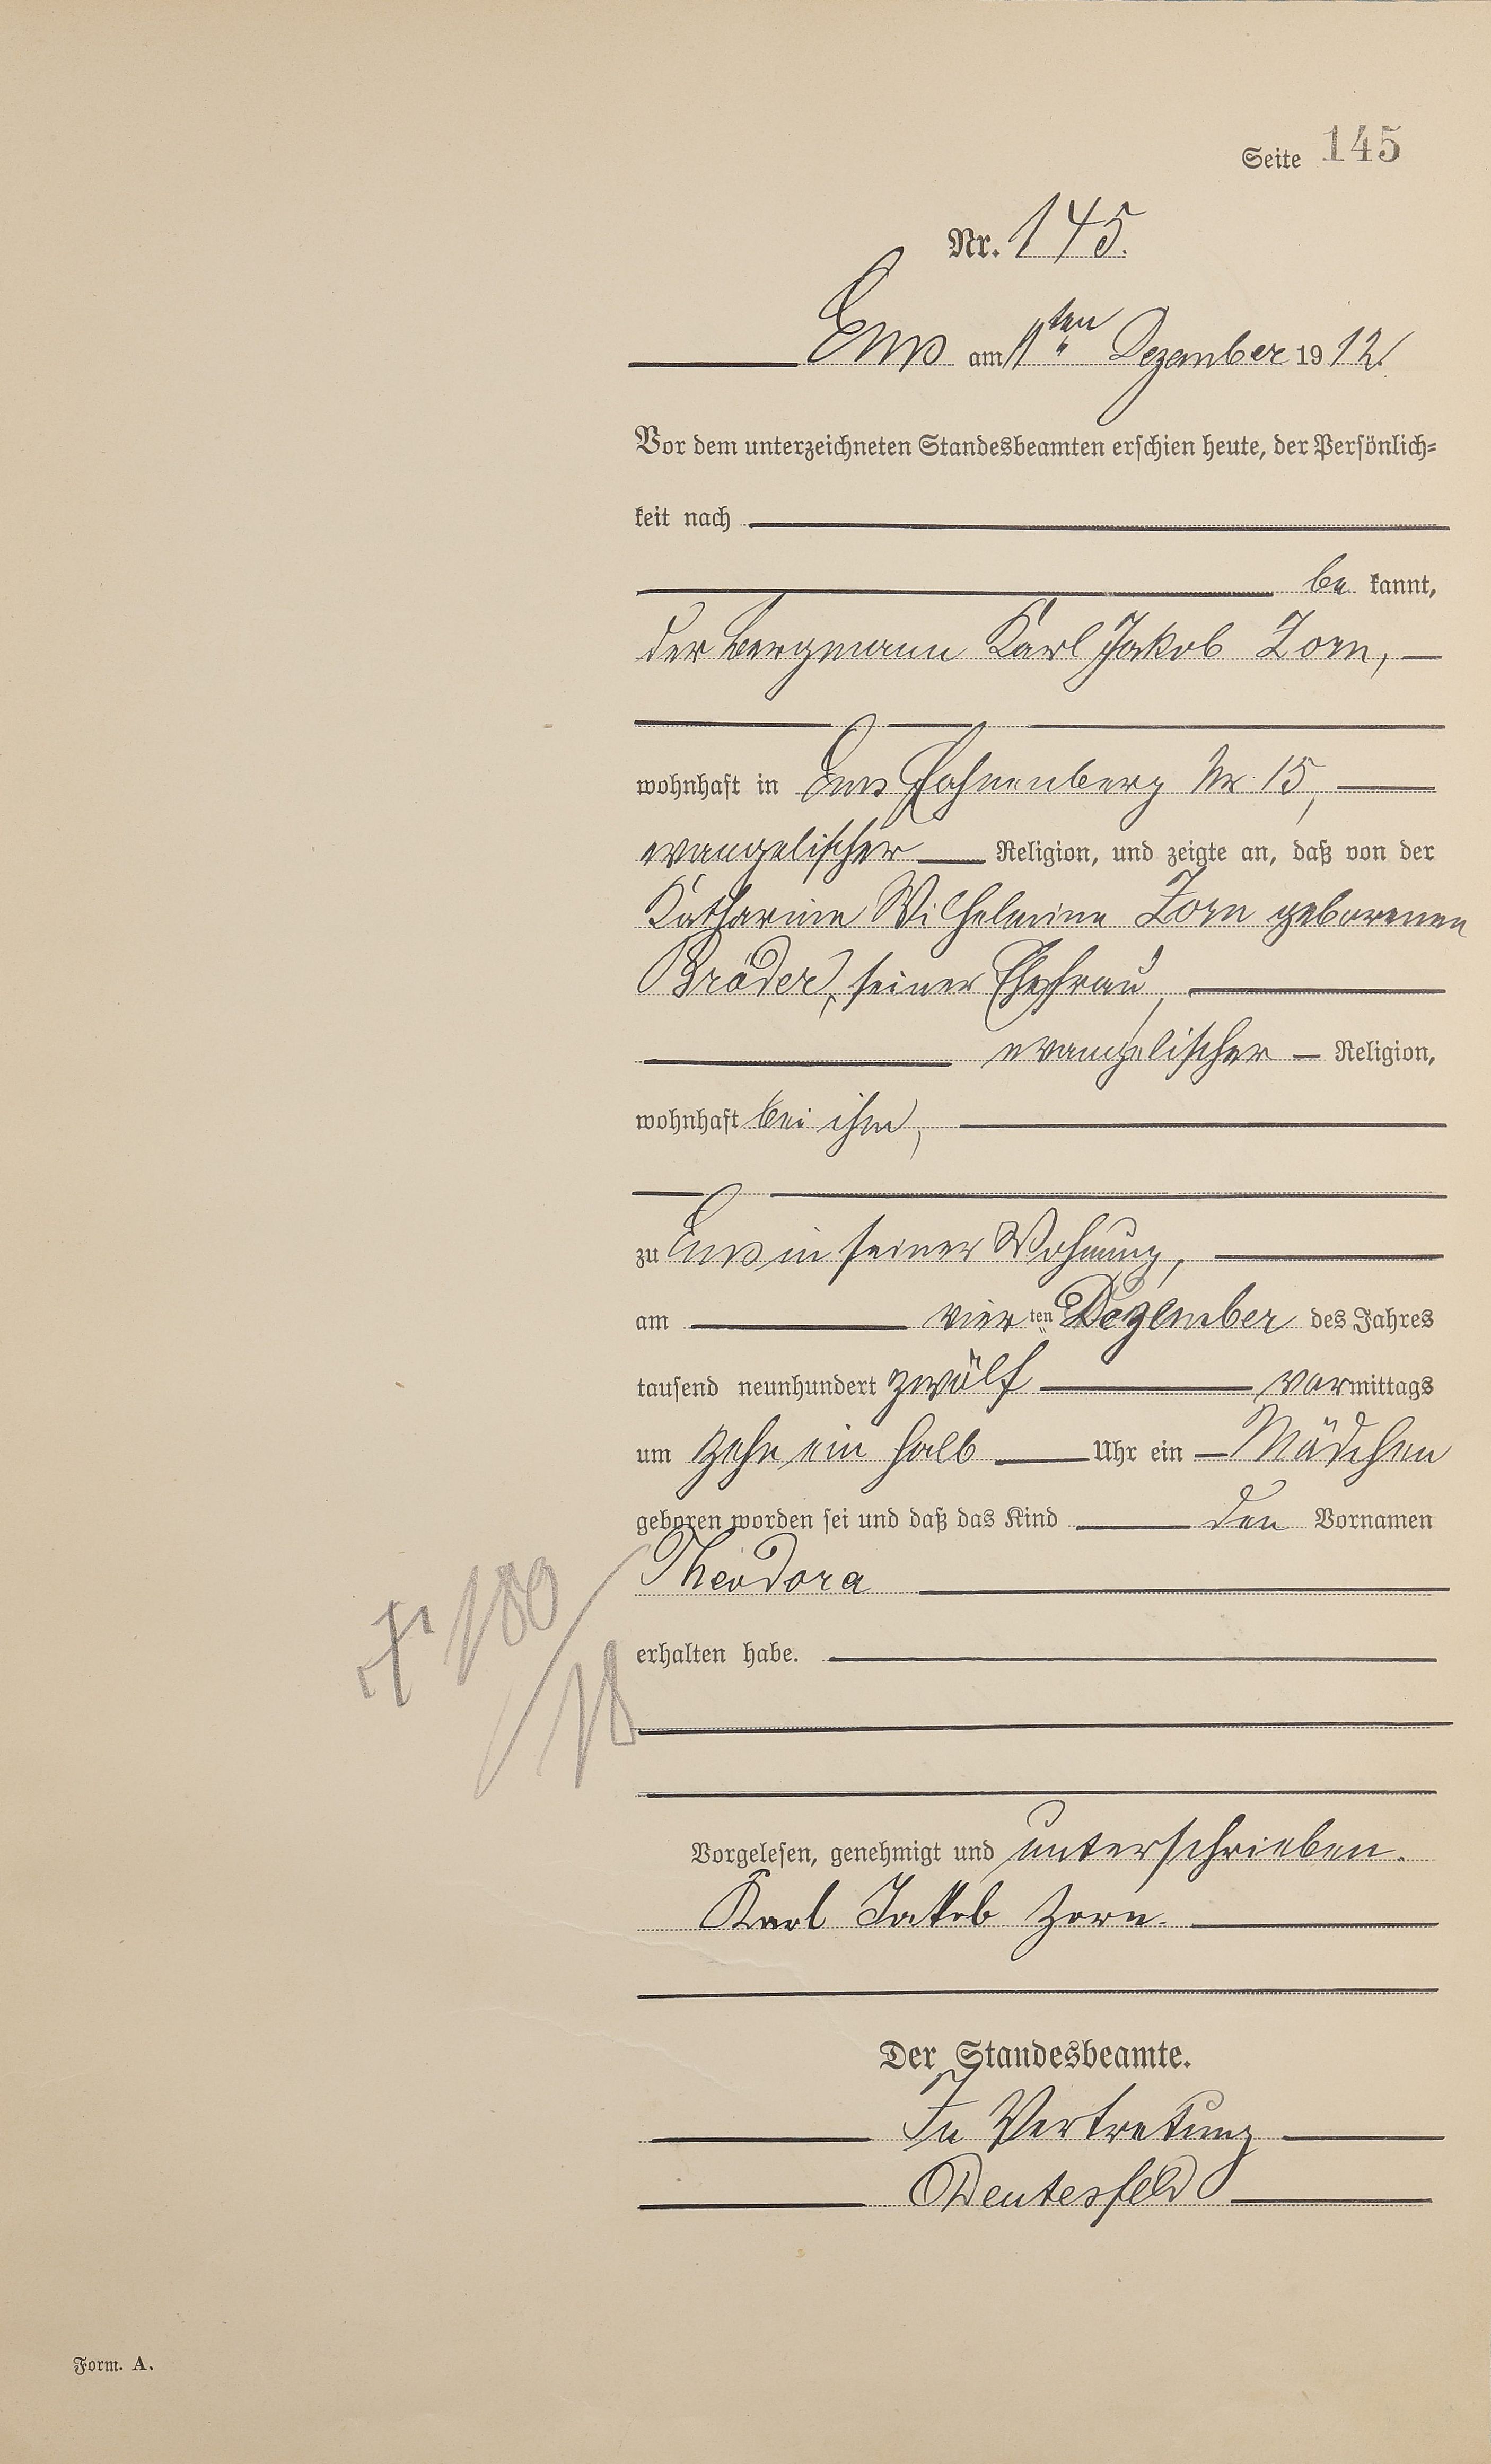 Seite 145
Nr. 145.
Ems am ten Dezember 1912.
Vor dem unterzeichneten Standesbeamten erschien heute, der Persönlich=
keit nach
be kannt,
der Bergmann Karl Jakob Zorn,
wohnhaft in Ems Hohenberg Nr. 15,
evangelischer Religion, und zeigte an, daß von der
Katharine Wilhelmine Zorn geborenen
Bröder, seiner Ehefrau,
evangelischer Religion,
wohnhaft bei ihm,
zu Ems in seiner Wohnung,
am vier ten Dezember des Jahres
tausend neunhundert zwölf vormittags
um zehn ein halb Uhr ein Mädchen
geboren worden sei und daß das Kind den Vornamen
Theodora
erhalten habe.
† 100/18
Vorgelesen, genehmigt und unterschrieben.
Karl Jakob Zorn.
Der Standesbeamte.
In Vertretung
Form. A.